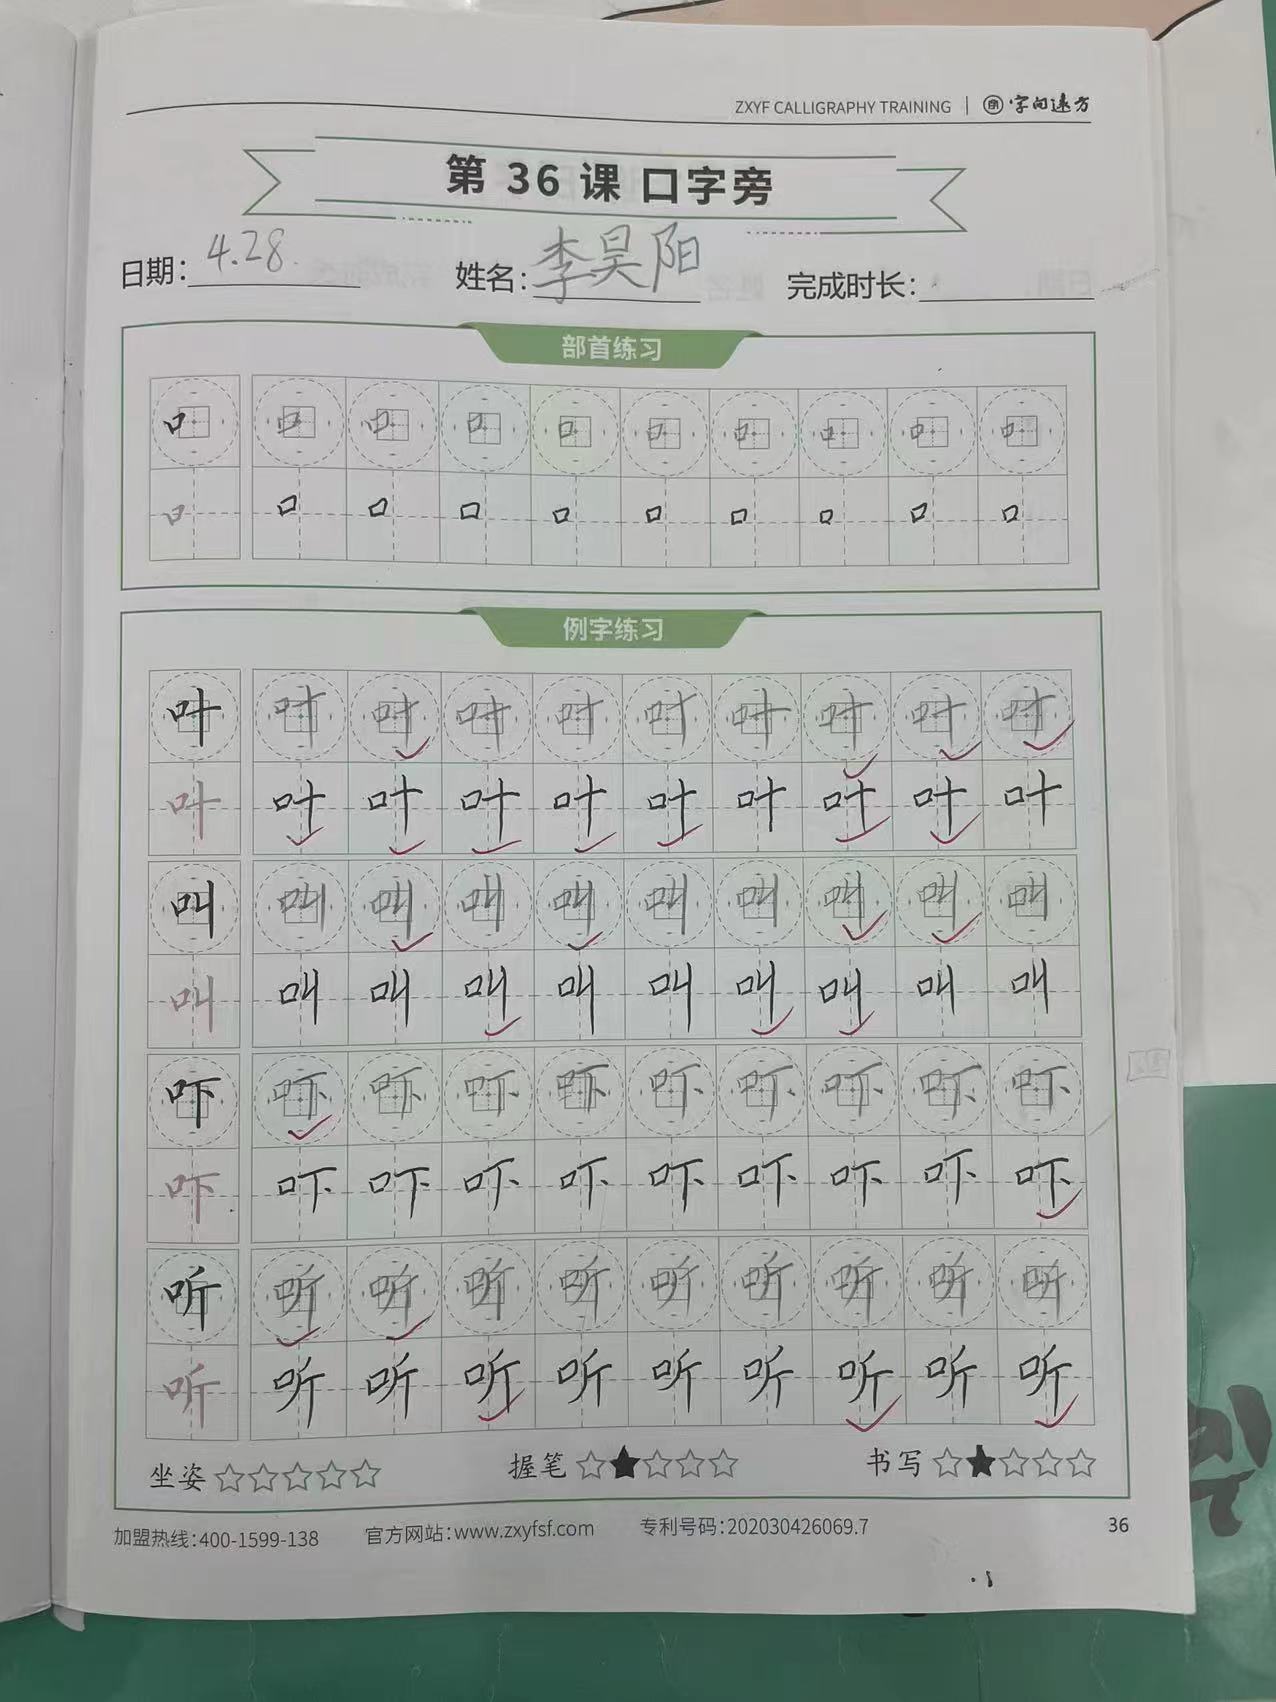 ZXYF CALLIGRAPHY TRAINING | 字向远方
第 36 课 口字旁
日期: 4.28. 姓名: 李昊阳 完成时长:
部首练习
口 口 口 口 口 口 口 口 口 口
口 口 口 口 口 口 口 口 口 口
例字练习
叶 叶 叶 叶 叶 叶 叶 叶 叶 叶
叶 叶 叶 叶 叶 叶 叶 叶 叶 叶
叫 叫 叫 叫 叫 叫 叫 叫 叫 叫
叫 叫 叫 叫 叫 叫 叫 叫 叫 叫
吓 吓 吓 吓 吓 吓 吓 吓 吓 吓
吓 吓 吓 吓 吓 吓 吓 吓 吓 吓
听 听 听 听 听 听 听 听 听 听
听 听 听 听 听 听 听 听 听 听
坐姿 ☆☆☆☆☆ 握笔 ☆★☆☆☆ 书写 ☆★☆☆☆
加盟热线:400-1599-138 官方网站:www.zxyfsf.com 专利号码:202030426069.7 36